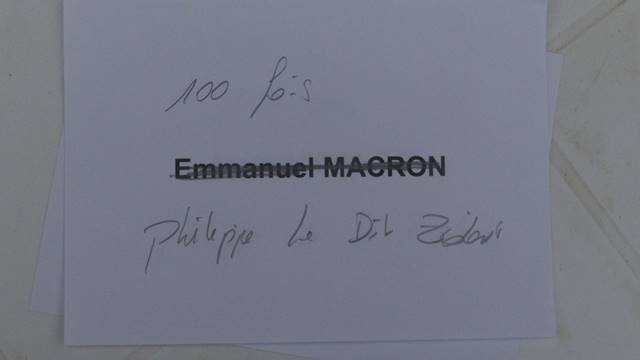 100 fois
Emmanuel MACRON
Philippe Le Dit